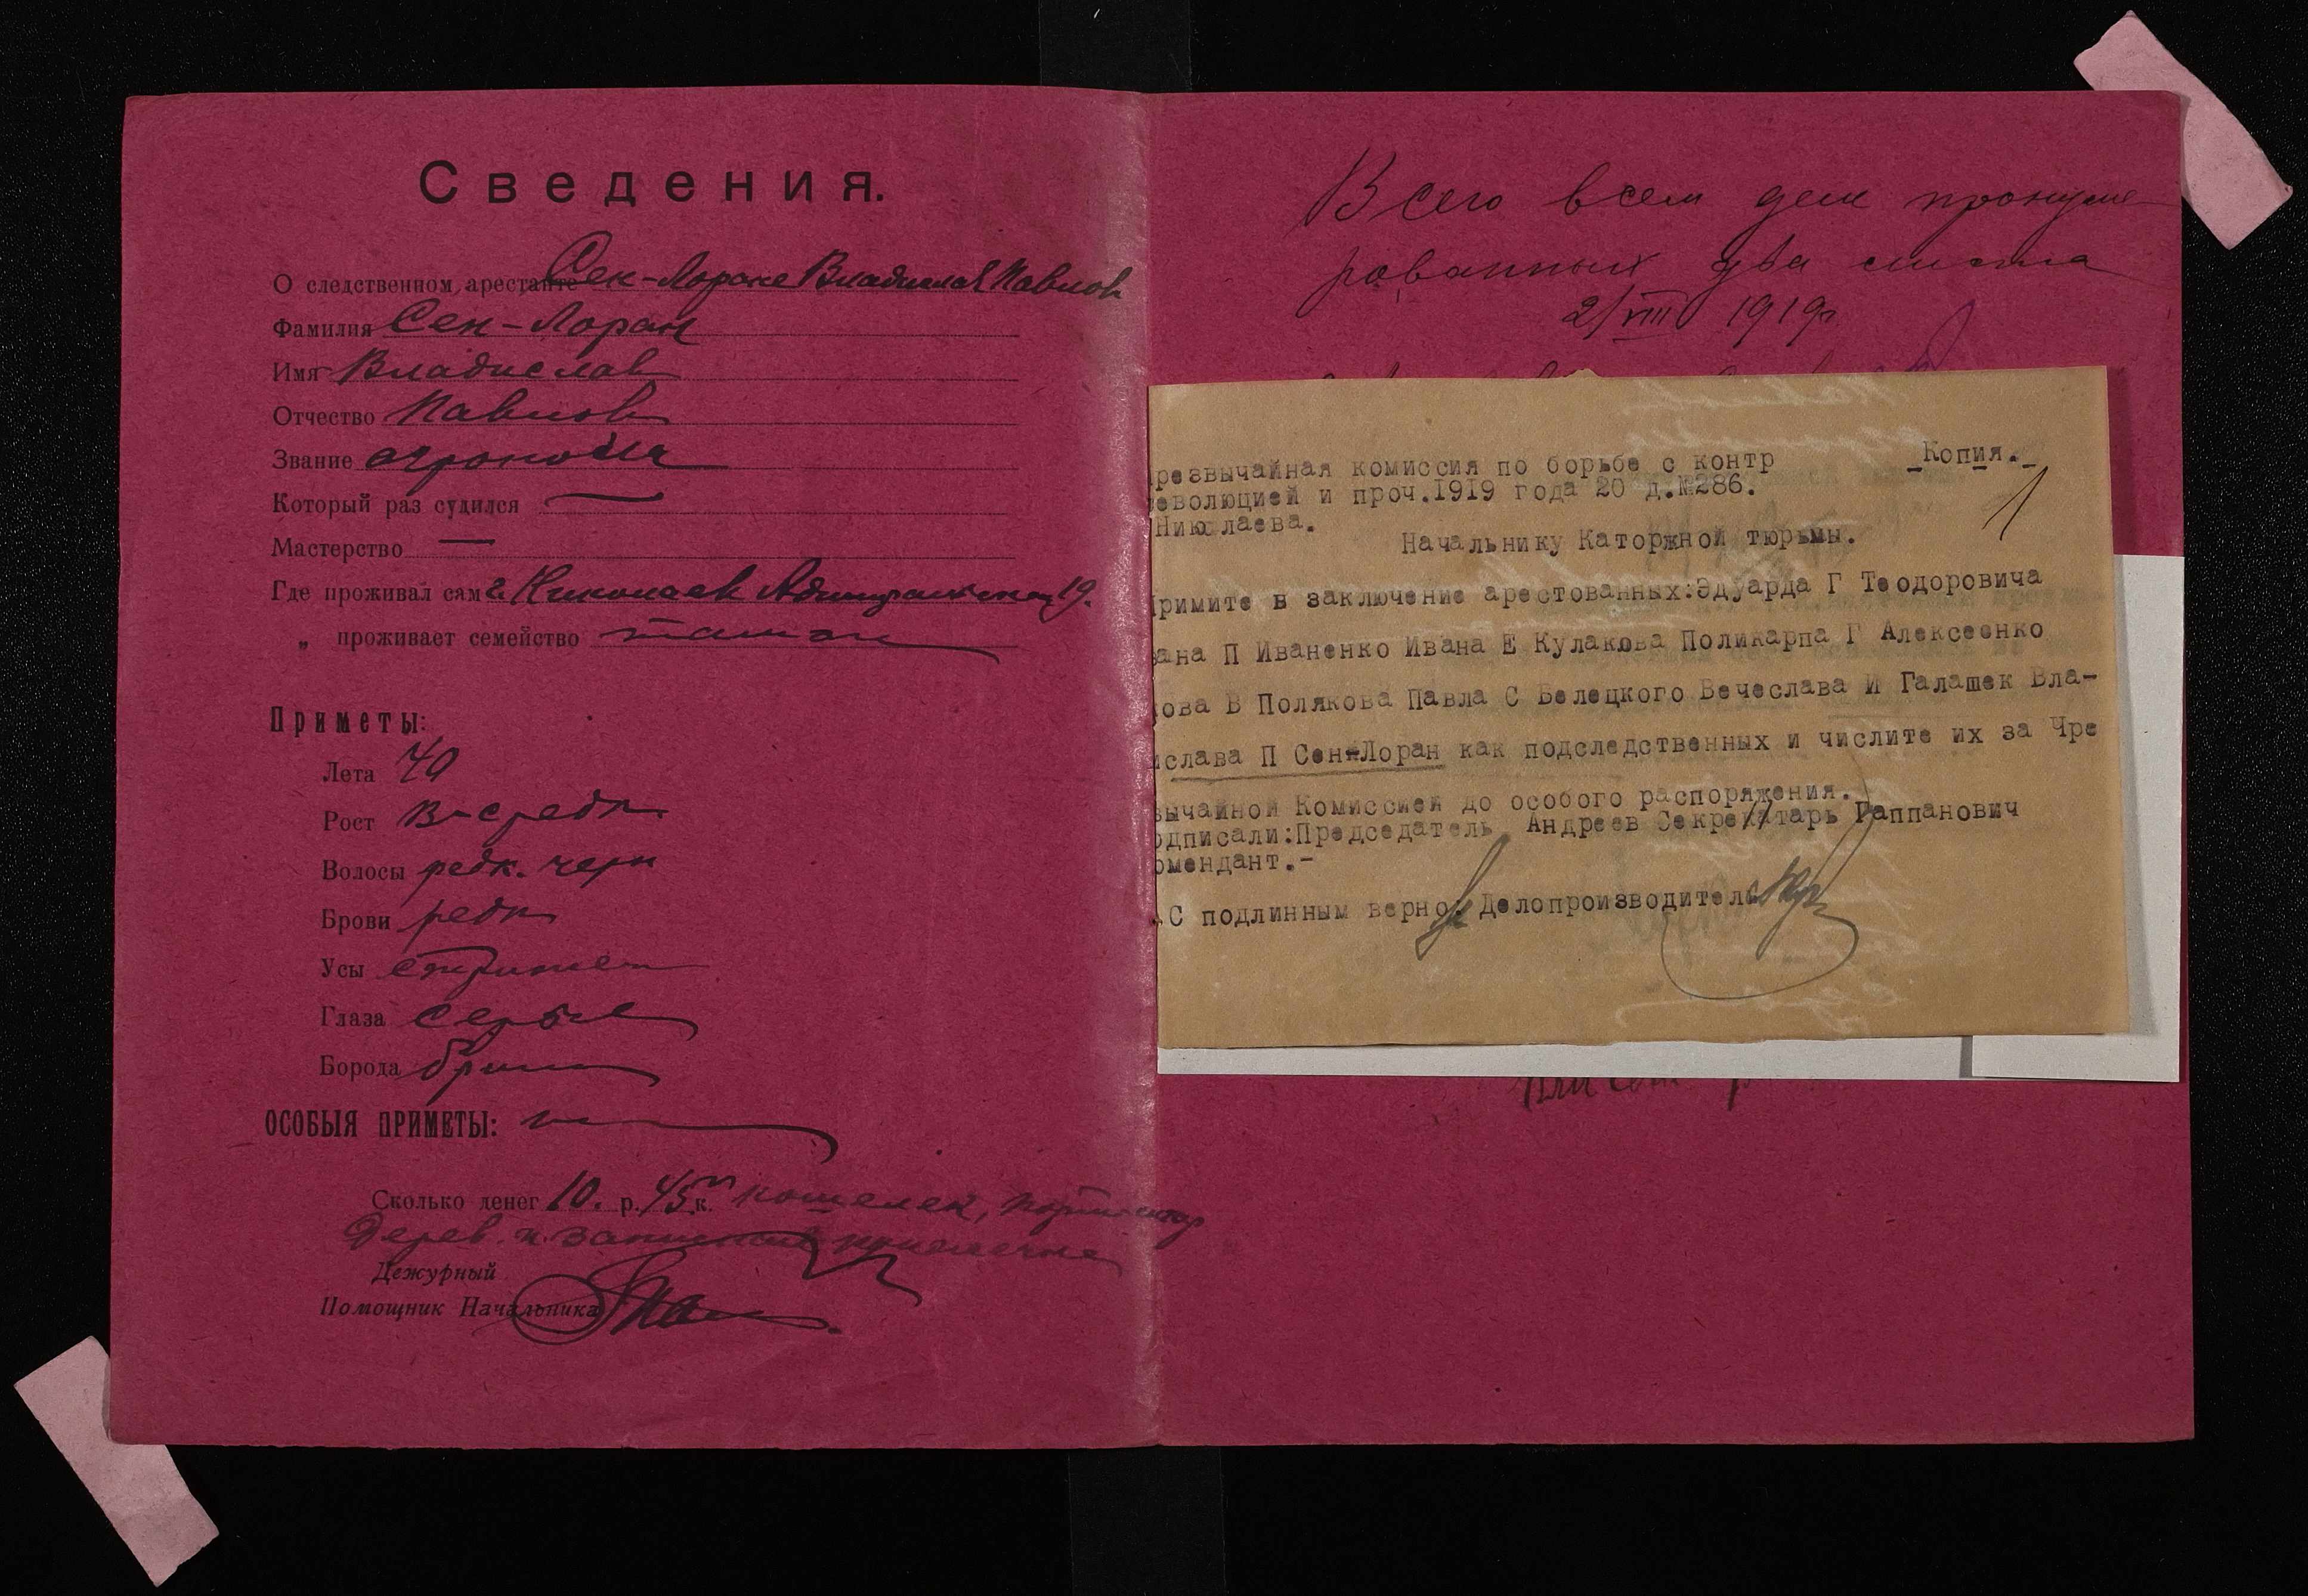 Сведения.
О следственном арестанте Сен-Лоране Владислав Павлов
Фамилия Сен-Лоран
Имя Владислав
Отчество Павлов
Звание агроном
Который раз судился —
Мастерство —
Где проживал сам г. Николаев Адмиральская 19.
„ проживает семейство там же
Приметы:
Лета 40
Рост в-средн
Волосы редк. черн
Брови редк
Усы стрижен
Глаза серые
Борода брит
ОСОБЫЯ ПРИМЕТЫ:
Сколько денег 10. р. 45 к. кошелек, портсигар
дерев. и записная книжечка
Дежурный
Помощник Начальника
Всего в сем деле пронуме-
рованных два листа
2/VIII 1919г.
Копия.
1
резвычайная комиссия по борьбе с контр
революцией и проч.1919 года 20 д.№286.
Николаева.
Начальнику Каторжной тюрьмы.
Примите в заключение арестованных:Эдуарда Г Теодоровича
вана П Иваненко Ивана Е Кулакова Поликарпа Г Алексеенко
кова В Полякова Павла С Белецкого Вечеслава И Галашек Вла-
ислава П Сен-Лоран как подследственных и числите их за Чре
вычайной Комиссией до особого распоряжения.
одписали:Председатель Андреев Секретарь Гаппанович
омендант.-
С подлинным верно: Делопроизводитель